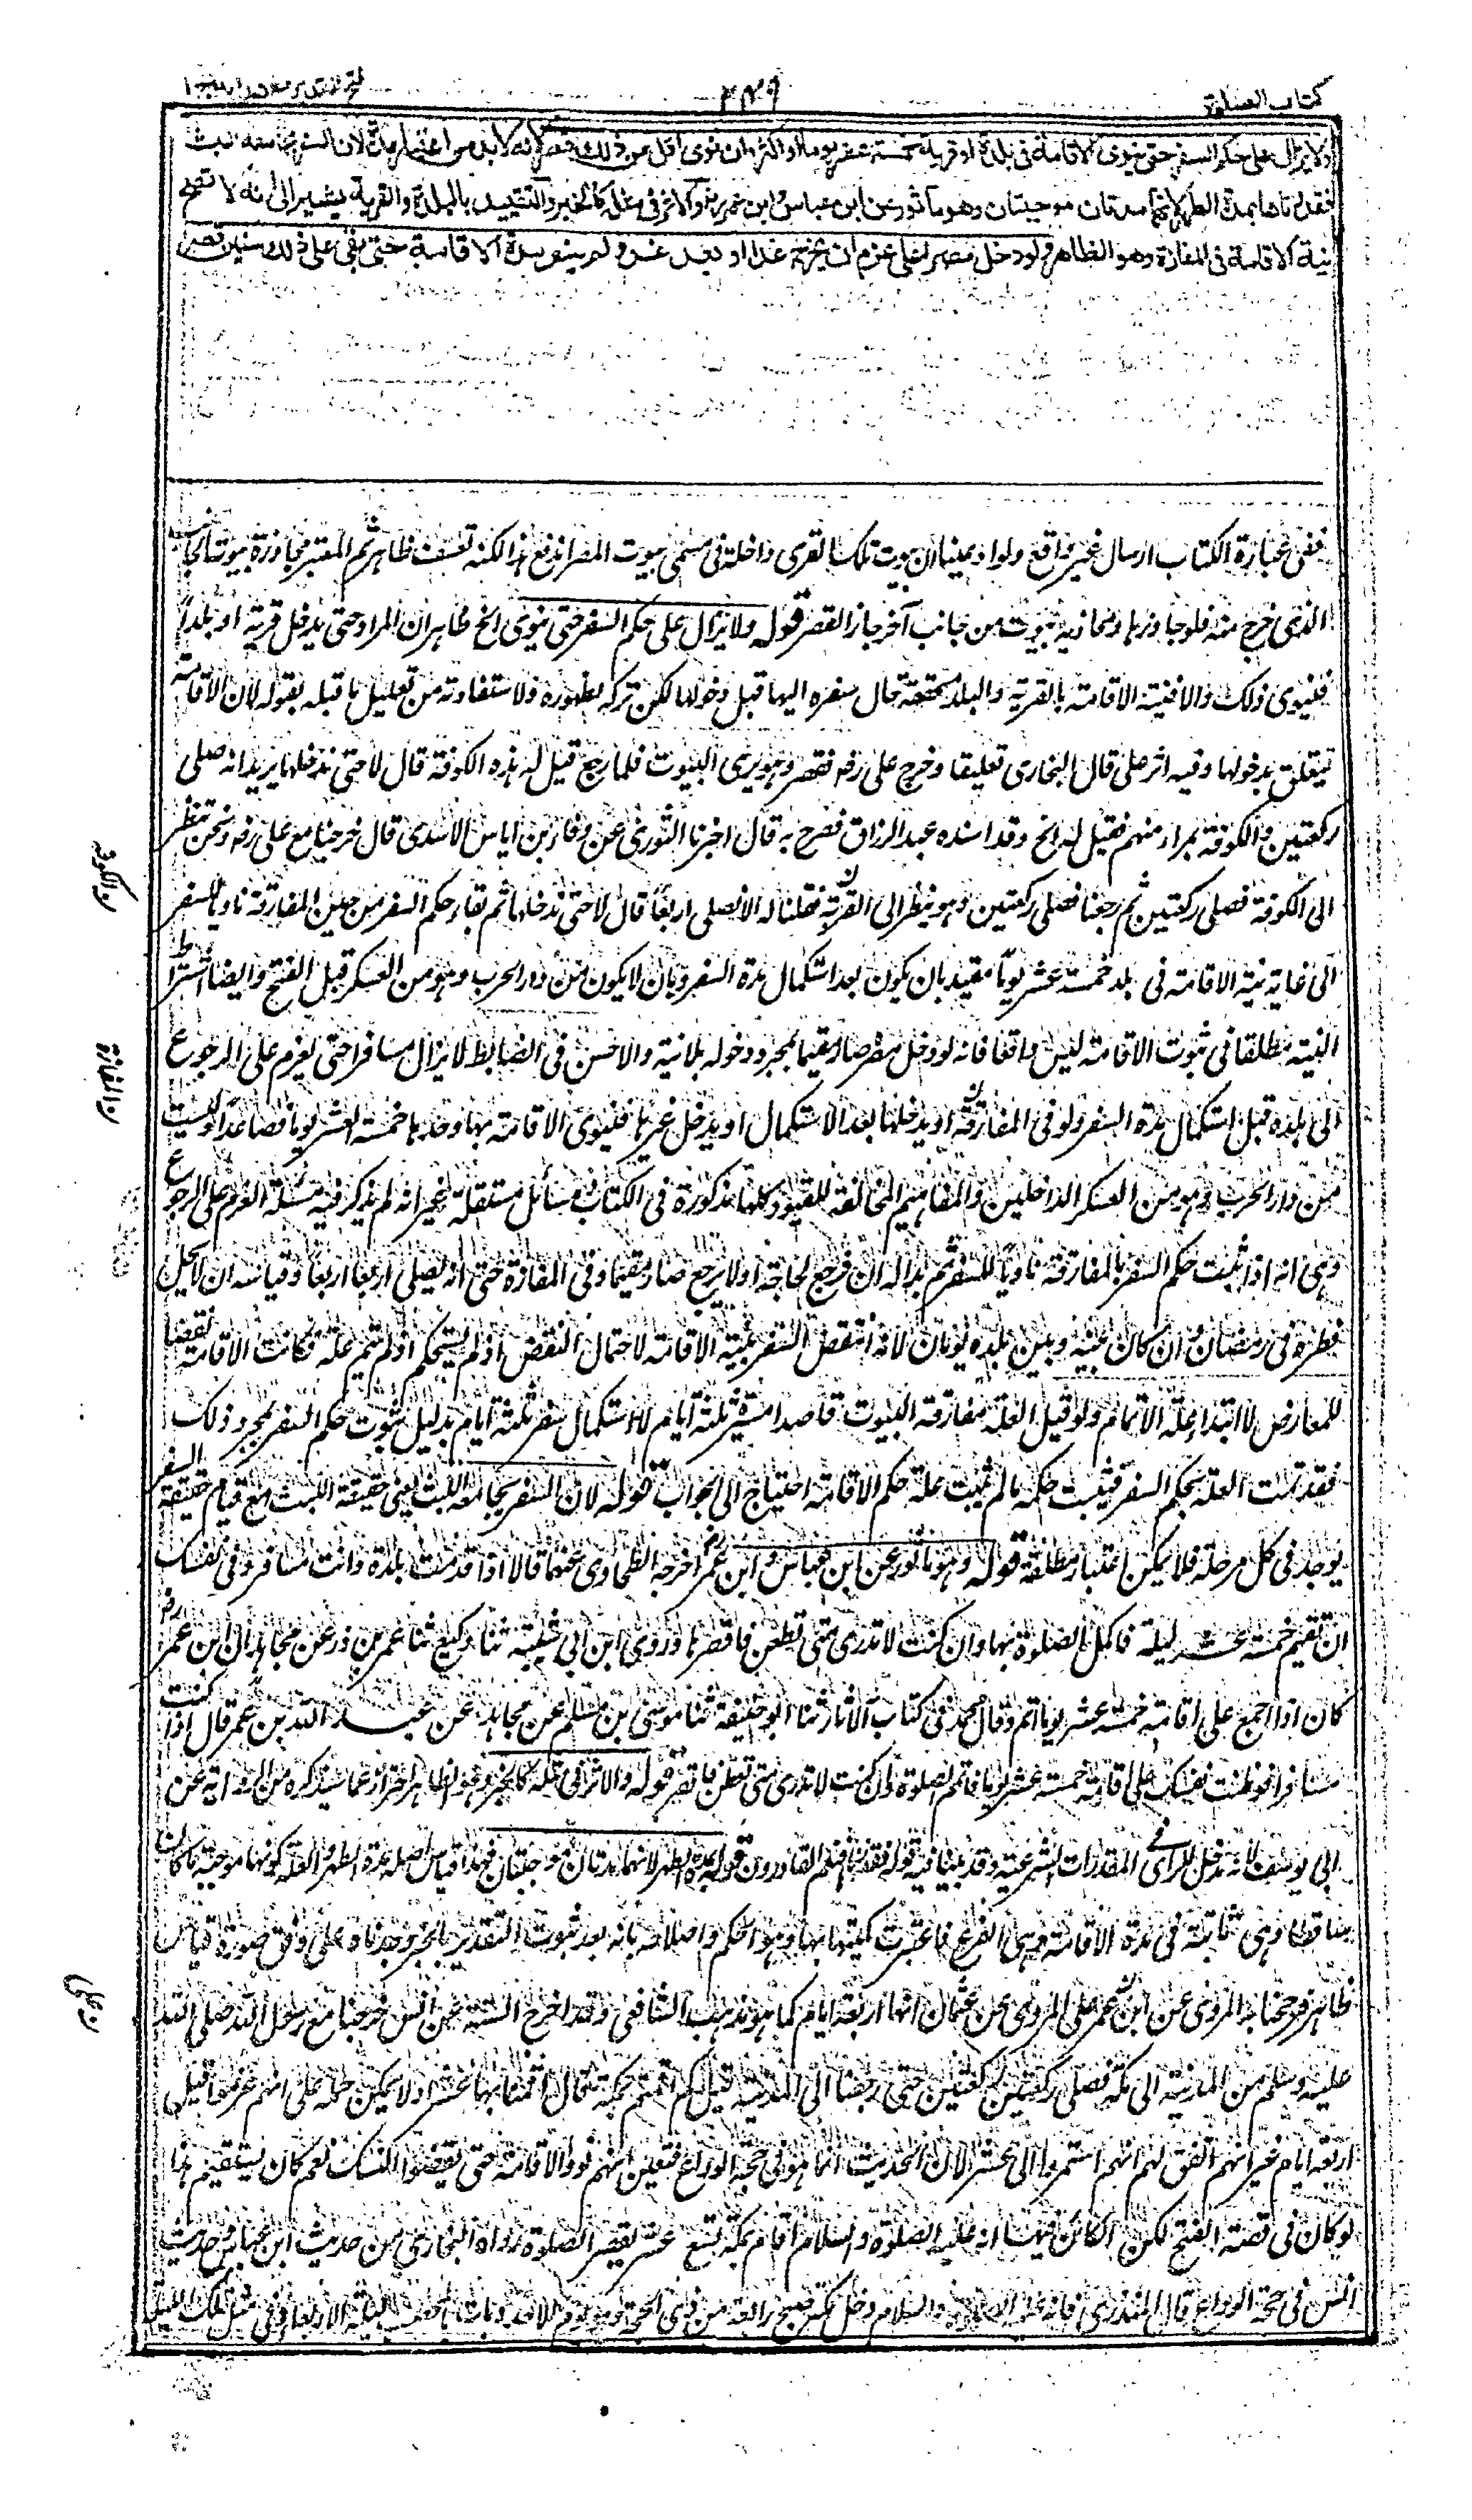 كتاب الصلوة
٢٤٩
فتح القدير مع هداية جلد ١
ولا يزال على حكم السفر حتى ينوى الاقامة فى بلدة او قرية خمسة عشر يوما او اكثر وان نوى اقل من ذلك قصر لانه لابد من اعتبار مدة لان السفر يجامعه اللبث
فقدرناها بمدة الطهر لانهما مدتان موجبتان وهو ماثور عن ابن عباس وابن عمر رض والاثر فى مثله كالخبر والتقييد بالبلدة والقرية يشير الى انه لا تصح
نية الاقامة فى المفازة وهو الظاهر ولو دخل مصرا على عزم ان يخرج غدا او بعد غد ولم ينو مدة الاقامة حتى بقى على ذلك سنين قصر
ففى عبارة الكتاب ارسال غير واقع ولو ادعينا ان بيوت تلك القرى داخلة فى مسمى بيوت المصر اندفع هذا لكنه تعسف ظاهر ثم المعتبر مجاوزة بيوت الجانب
الذى خرج منه فلو جاوزها ومحاذيه بيوت من جانب آخر جاز القصر قوله ولا يزال على حكم السفر حتى ينوى الخ ظاهر ان المراد حتى يدخل قرية او بلدا
فينوى ذلك والا فنية الاقامة بالقرية والبلد متحققة حال سفره اليها قبل دخولها لكن تركه لظهوره ولاستفادته من تعليل ما قبله بقوله لان الاقامة
تتعلق بدخولها وفيه اثر على قال البخارى تعليقا وخرج على رض فقصر وهو يرى البيوت فلما رجع قيل له هذه الكوفة قال لا حتى ندخلها يريد انه صلى
ركعتين والكوفة بمرأى منهم فقيل له الخ وقد اسنده عبد الرزاق فصرح به قال اخبرنا الثورى عن وفاء بن اياس الاسدى قال خرجنا مع على رض ونحن ننظر
الى الكوفة فصلى ركعتين ثم رجعنا فصلى ركعتين وهو ينظر الى القرية فقلنا له الا تصلى اربعا قال لا حتى ندخلها ثم بقاء حكم السفر من حين المفارقة ناويا للسفر
الى غاية نية الاقامة فى بلد خمسة عشر يوما مقيد بان يكون بعد استكمال مدة السفر وبان لا يكون من دار الحرب وهو من العسكر قبل الفتح وايضا اشتراط
النية مطلقا فى ثبوت الاقامة ليس واقعا فانه لو دخل مصره صار مقيما بمجرد دخوله بلا نية والاحسن فى الضابط لا يزال مسافرا حتى يعزم على الرجوع
الى بلده قبل استكمال مدة السفر ولو فى المفازة او يدخلها بعد الاستكمال او يدخل غيرها فينوى الاقامة بها وحدها خمسة عشر يوما فصاعدا وليست
من دار الحرب وهو من العسكر الداخلين والمفاهيم المخالفة للقيود كلها مذكورة فى الكتاب مسائل مستقلة غير انه لم يذكر فيه مسئلة العزم على الرجوع
وهى انه اذا ثبت حكم السفر بالمفارقة ناويا للسفر ثم بدا له ان يرجع لحاجة اولا يرجع صار مقيما وفى المفازة حتى انه يصلى اربعا اربعا وقياسه ان لا يحل
فطره فى رمضان وان كان بينه وبين بلده يومان لانه انتقض السفر بنية الاقامة لاحتمال النقض اذ لم يستحكم اذ لم تتم علة فكانت الاقامة نقضا
للعارض لا ابتداء علة الاتمام ولو قيل العلة مفارقة البيوت قاصدا مسيرة ثلثة ايام لا استكمال سفر ثلثة ايام بدليل ثبوت حكم السفر بمجرد ذلك
فقد تمت العلة لحكم السفر فيثبت حكمه ما لم تثبت علة حكم الاقامة احتاج الى الجواب قوله لان السفر يجامعه اللبث يعنى حقيقة اللبث مع قيام حقيقة السفر
يوجد فى كل مرحلة فلا يمكن اعتبار مطلقه قوله وهو ماثور عن ابن عباس وابن عمر رض اخرجه الطحاوى عنهما قالا اذا قدمت بلدة وانت مسافر وفى نفسك
ان تقيم خمسة عشر ليلة فاكمل الصلوة بها وان كنت لا تدرى متى تظعن فاقصرها وروى ابن ابى شيبة ثنا وكيع ثنا عمر بن ذر عن مجاهد ان ابن عمر رض
كان اذا اجمع على اقامة خمسة عشر يوما اتم وقال محمد فى كتاب الآثار ثنا ابو حنيفة ثنا موسى ابن مسلم عن مجاهد عن عبد الله بن عمر قال اذا كنت
مسافرا فوطنت نفسك على اقامة خمسة عشر يوما فاتم الصلوة وان كنت لا تدرى متى تظعن فاقصر قوله والاثر فى مثله كالخبر وهو الظاهر احتراز عما سيذكره من الرواية عن
ابى يوسف لانه لا مدخل للراى فى المقدرات الشرعية قوله بمدة الطهر لانهما مدتان موجبتان فهذا قياس اصله مدة الطهر والعلة كونها موجبة ما كان
ساقطا وهى ثابتة فى مدة الاقامة وهى الفرع فاعتبرت كميتها بها وهو الحكم واصلاحه بانه بعد ثبوت التقدير بالخبر وجدناه على وفق صورة قياس
ظاهر فرجحنا به المروى عن ابن عمر على المروى عن عثمان انها اربعة ايام كما هو مذهب الشافعى وقد اخرج الستة عن انس خرجنا مع رسول الله صلى الله
عليه وسلم من المدينة الى مكة فصلى ركعتين ركعتين حتى رجعنا الى المدينة قيل كم اقمتم بمكة قال اقمنا بها عشرا ولا يمكن حمله على انهم عزموا قبل
اربعة ايام غير انهم اتفق لهم انهم استمروا الى عشر لان الحديث انما هو فى حجة الوداع فتعين انهم نووا الاقامة حتى يقضوا النسك نعم كان يستقيم هذا
لو كان فى قصة الفتح لكن الكائن فيها انه عليه الصلوة والسلام اقام بمكة تسع عشر يقصر الصلوة رواه البخارى من حديث ابن عباس وحديث
انس فى حجة الوداع قال المنذرى فانه عليه الصلوة والسلام دخل مكة صبح رابعة من ذى الحجة وهو يوم الاحد وبات بالمحصب ليلة الاربعاء وفى مثل تلك الليلة